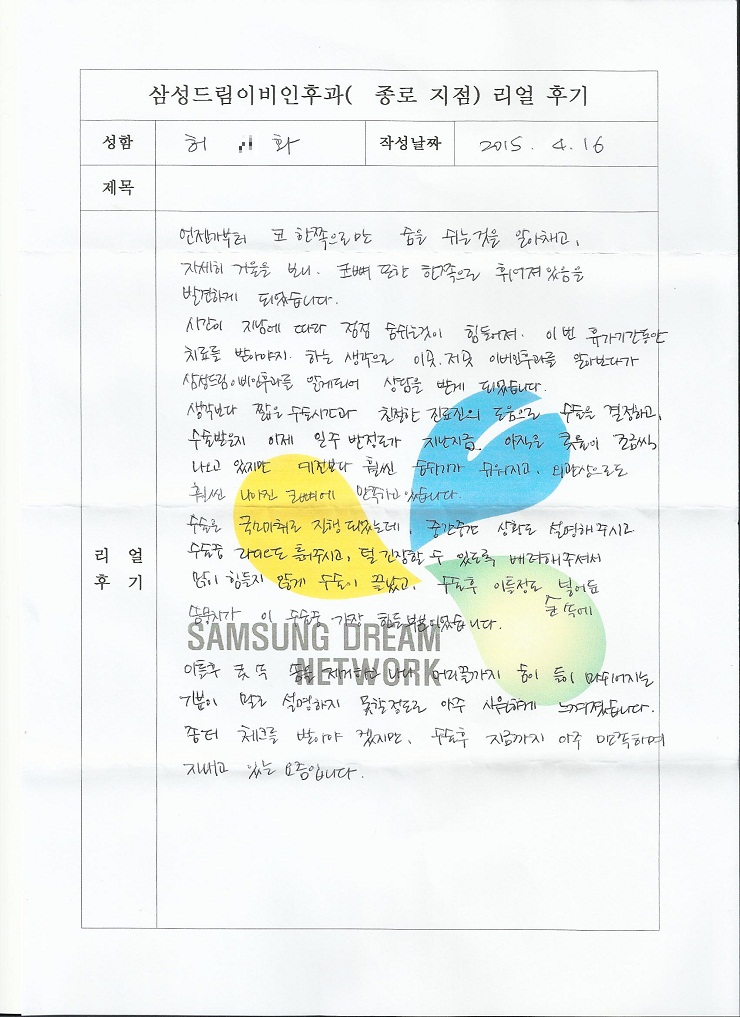 삼성드림이비인후과( 종로 지점) 리얼 후기
성함 허 화 작성날짜 2015. 4. 16
제목
리 얼
후 기
언젠가부터 코 한쪽으로만 숨을 쉬는것을 알아채고,
자세히 거울을 보니. 코뼈 또한 한쪽으로 휘어져있음을
발견하게 되었습니다.
시간이 지남에 따라 점점 숨쉬는것이 힘들어져. 이번 휴가기간동안
치료를 받아야지. 하는 생각으로 이곳.저곳 이비인후과를 알아보다가
삼성드림이비인후과를 알게되어 상담을 받게 되었습니다.
생각보다 짧은 수술시간과 친절한 진료진의 도움으로 수술을 결정하고,
수술받은지 이제 일주 반정도가 지난지금. 아직은 콧물이 조금씩
나오고 있지만 예전보다 훨씬 숨쉬기가 쉬워지고, 외관상으로도
훨씬 나아진 코뼈에 만족하고있습니다.
수술은 국소마취로 진행 되었는데, 중간중간 상황도 설명해주시고
수술중 라디오도 틀어주시고, 덜 긴장할 수 있도록 배려해주셔서
많이 힘들지 않게 수술이 끝났고, 수술후 이틀정도 넣어둔
솜뭉치가 이 수술중 가장 힘든부분이었습니다.
SAMSUNG DREAM
NETWORK
이틀후 콧 속 솜을 제거하고 나니 머리끝까지 숨이 들이 마쉬어지는
기분이 말로 설명하지 못할정도로 아주 시원하게 느껴졌습니다.
좀더 체크를 받아야 겠지만, 수술후 지금까지 아주 만족하며
지내고 있는 요즘입니다.